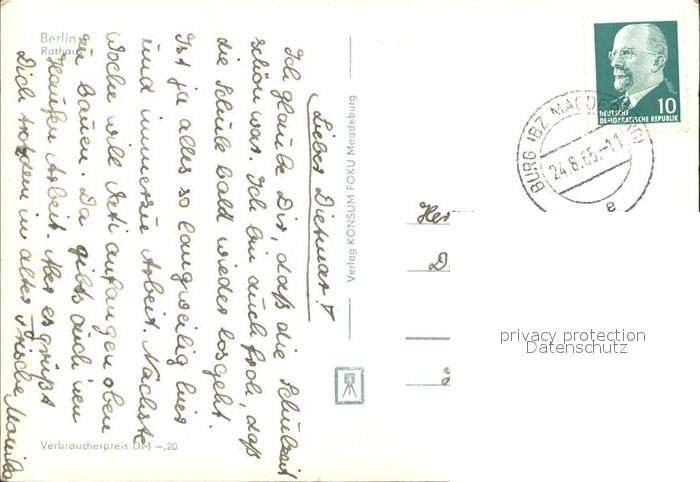 Berlin
Rathaus
Lieber Dietmar!
Ich glaube Dir, daß die Schulzeit
schön war. Ich bin auch froh, daß
die Schule bald wieder losgeht.
Ist ja alles so langweilig hier
und immerzu Arbeit. Nächste
Woche will Vati anfangen oben
zu bauen. Da gibts auch 'nen
Haufen Arbeit. Aber es grüßt
Dich trotzdem in alter Frische Monika
Verbraucherpreis DM –,20
Verlag KONSUM FOKU Magdeburg
10
DEUTSCHE
DEMOKRATISCHE REPUBLIK
BURG (BZ MAGDEBURG)
24.8.65.-11
e
privacy protection
Datenschutz